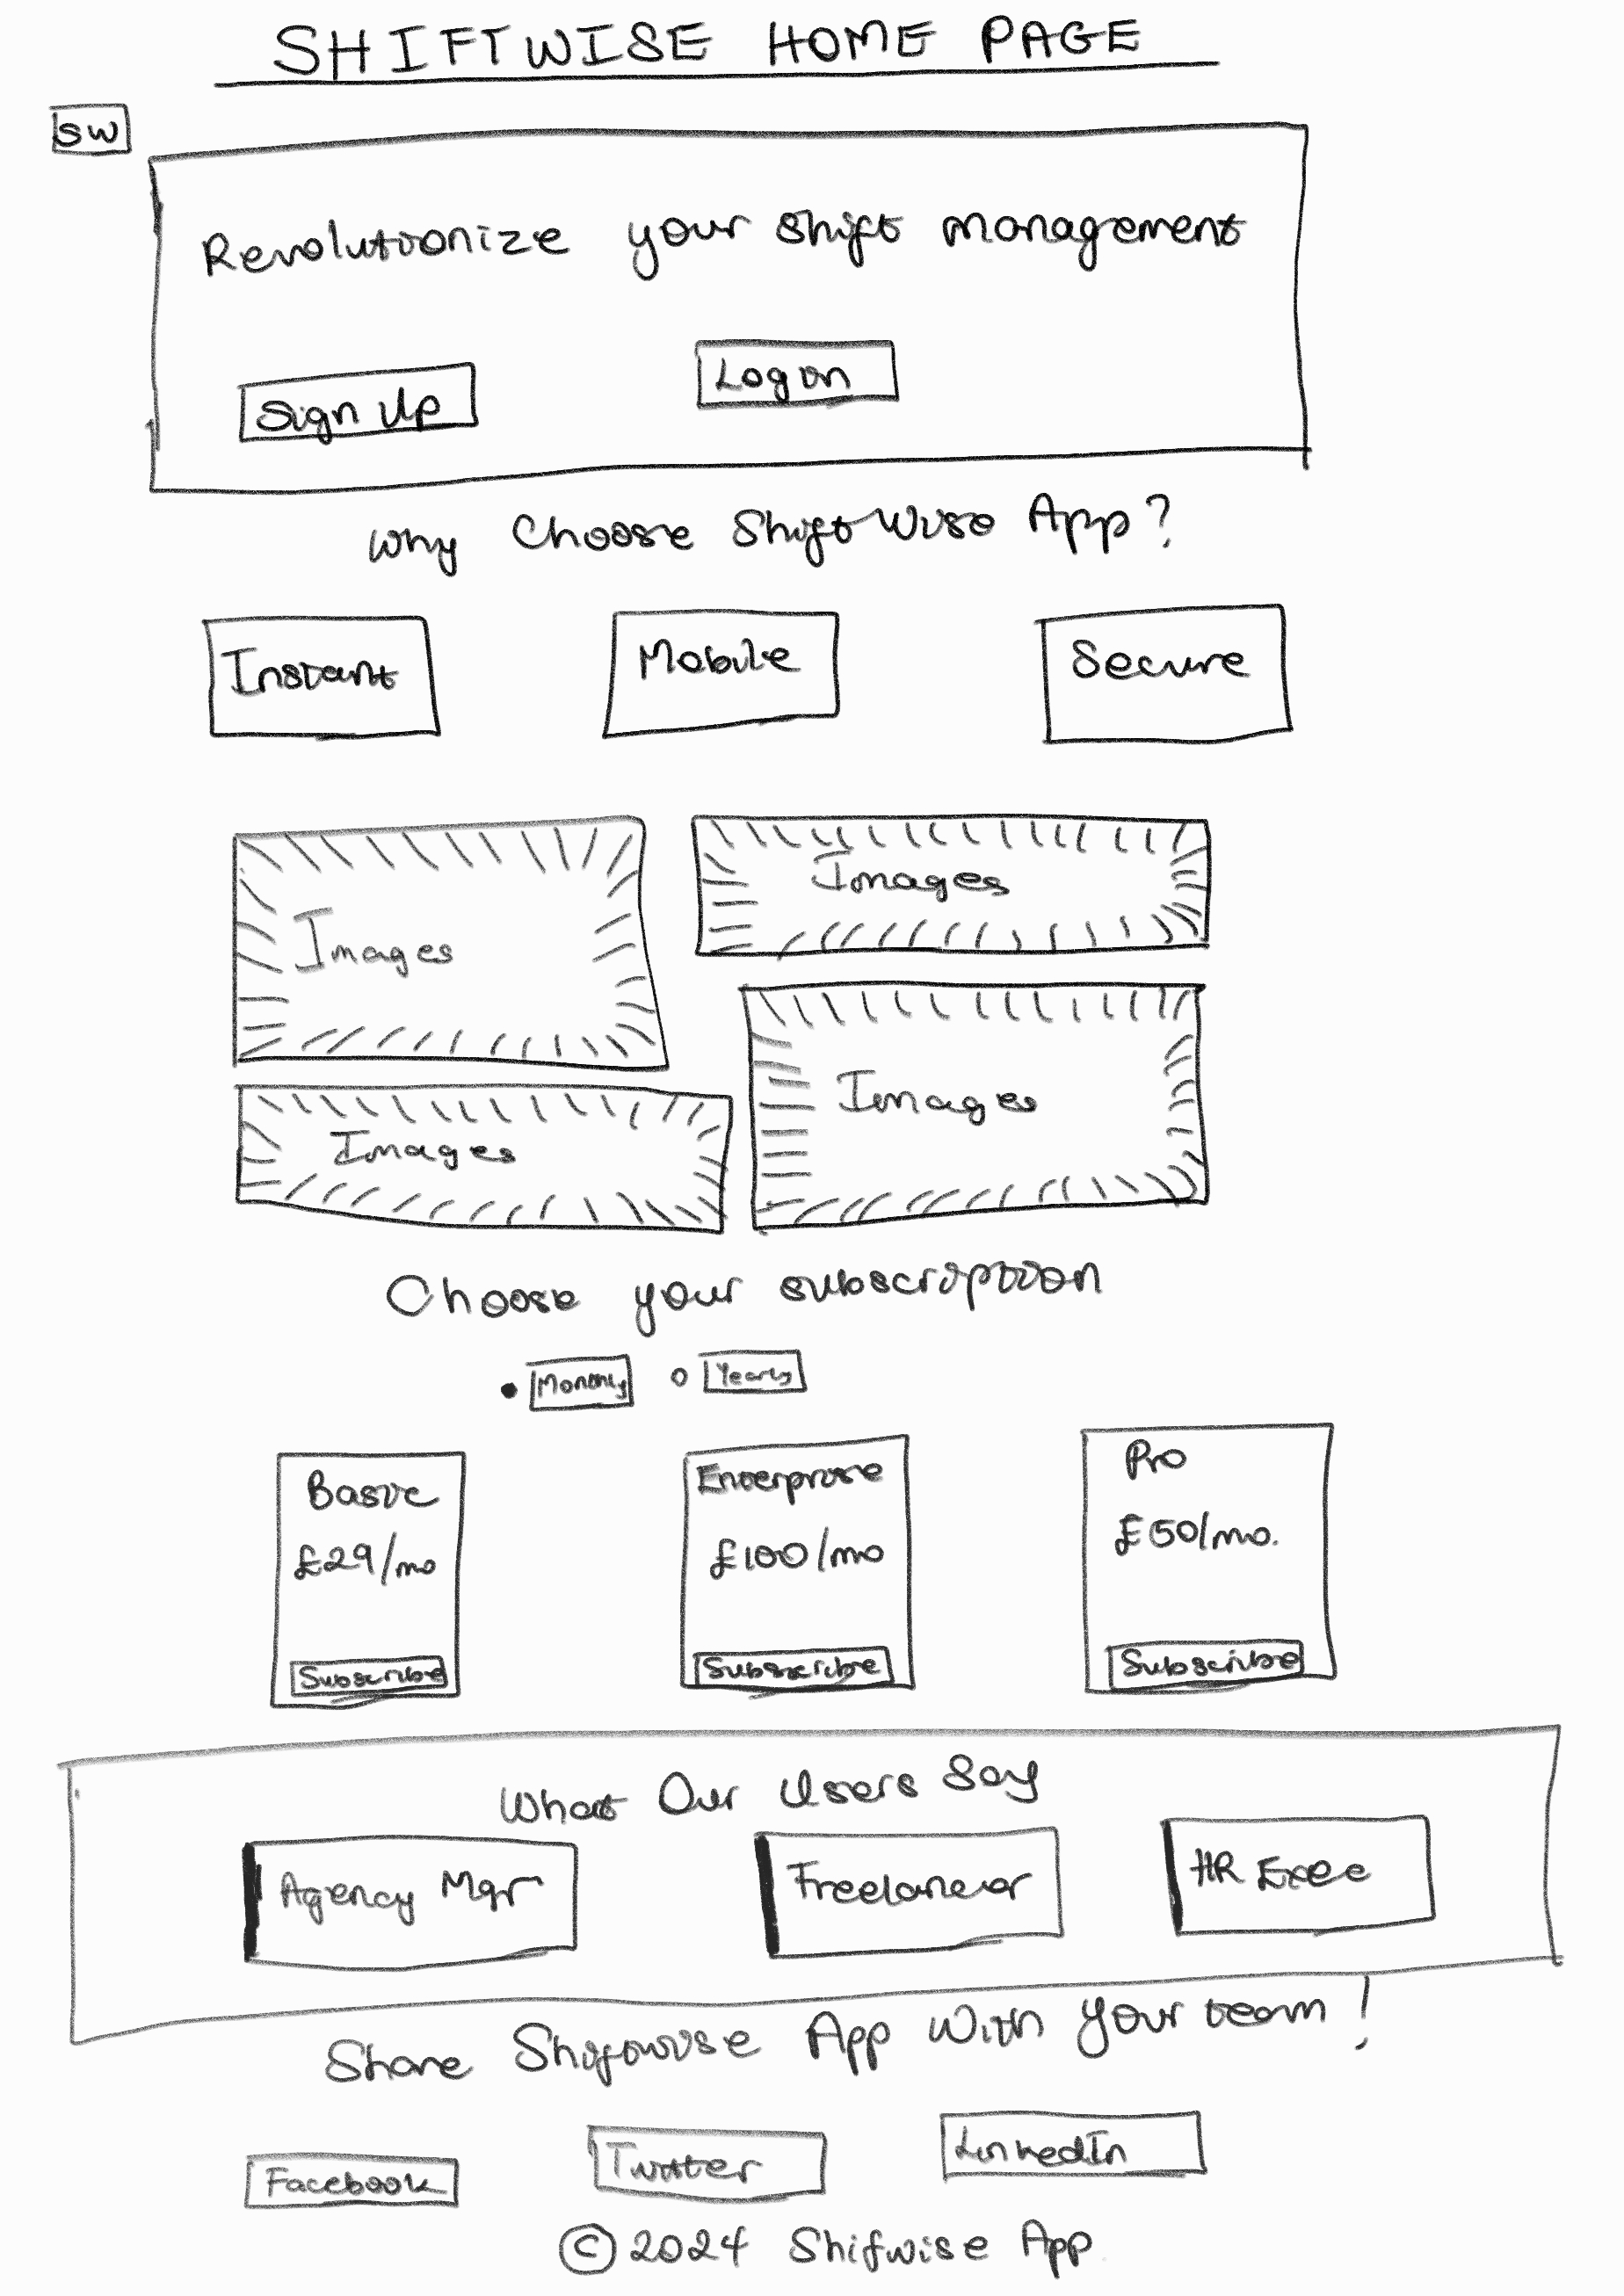 SHIFTWISE HOME PAGE
SW
Revolutionize your shift management
Sign Up
Log on
Why Choose ShiftWise App?
Instant
Mobile
Secure
Images
Images
Images
Images
Choose your subscription
Monthly
Yearly
Basic
£29/mo
Subscribe
Enterprise
£100/mo
Subscribe
Pro
£50/mo.
Subscribe
What Our Users Say
Agency Mgr
Freelancer
HR Exec
Share Shiftwise App with your team!
Facebook
Twitter
LinkedIn
© 2024 Shifwise App